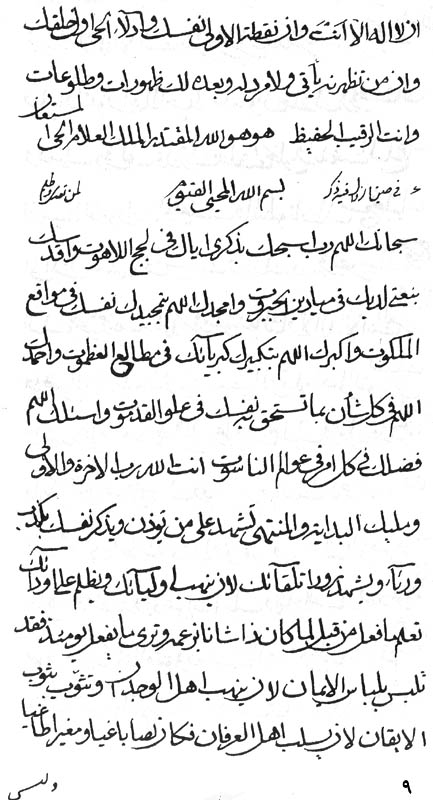 ان لا اله الا انت وان نقطة الاولى نفسك وادلاء الحي اول خلقك
وان من تظهرنه يأتي ولا مرد له وبعده لك ظهورات وطلوعات
وانت الرقيب الحفيظ هو هو الله المقتدر الملك العلام الحي المستعان
بسم الله المحيي
سبحانك اللهم رب اسبحك بذكرى اياك في لجج اللاهوت واقدسك
بنعتي لديك في ميادين الجبروت وامجدك اللهم بتمجيدك نفسك في مواقع
الملكوت واكبرك اللهم بتكبيرك كبريائك في مطالع العظموت واحمدك
اللهم في كل شأن بما تستحق به نفسك في علو القدموت واسئلك اللهم
فضلك في كل اوفى عوالم الناسوت انت الله رب الاخرة والاولى
وبيديك البداية والمنتهى تشهد على من يؤذن ويذكر نفسك
ورياء ويشهد زورا تلقائك لان ينهب اوليائك ويظلم على اودائك
تعلم ما فعل من قبل لما كان ذا شأن بزعمه وترى ما يفعل يومئذ فقد
تلبس بلباس الايمان لان ينهب اهل الوجدان وتثوب بثوب
الايقان لان يسلب اهل العرفان فكان نصابا غيا ومغيرا طاغيا
٩